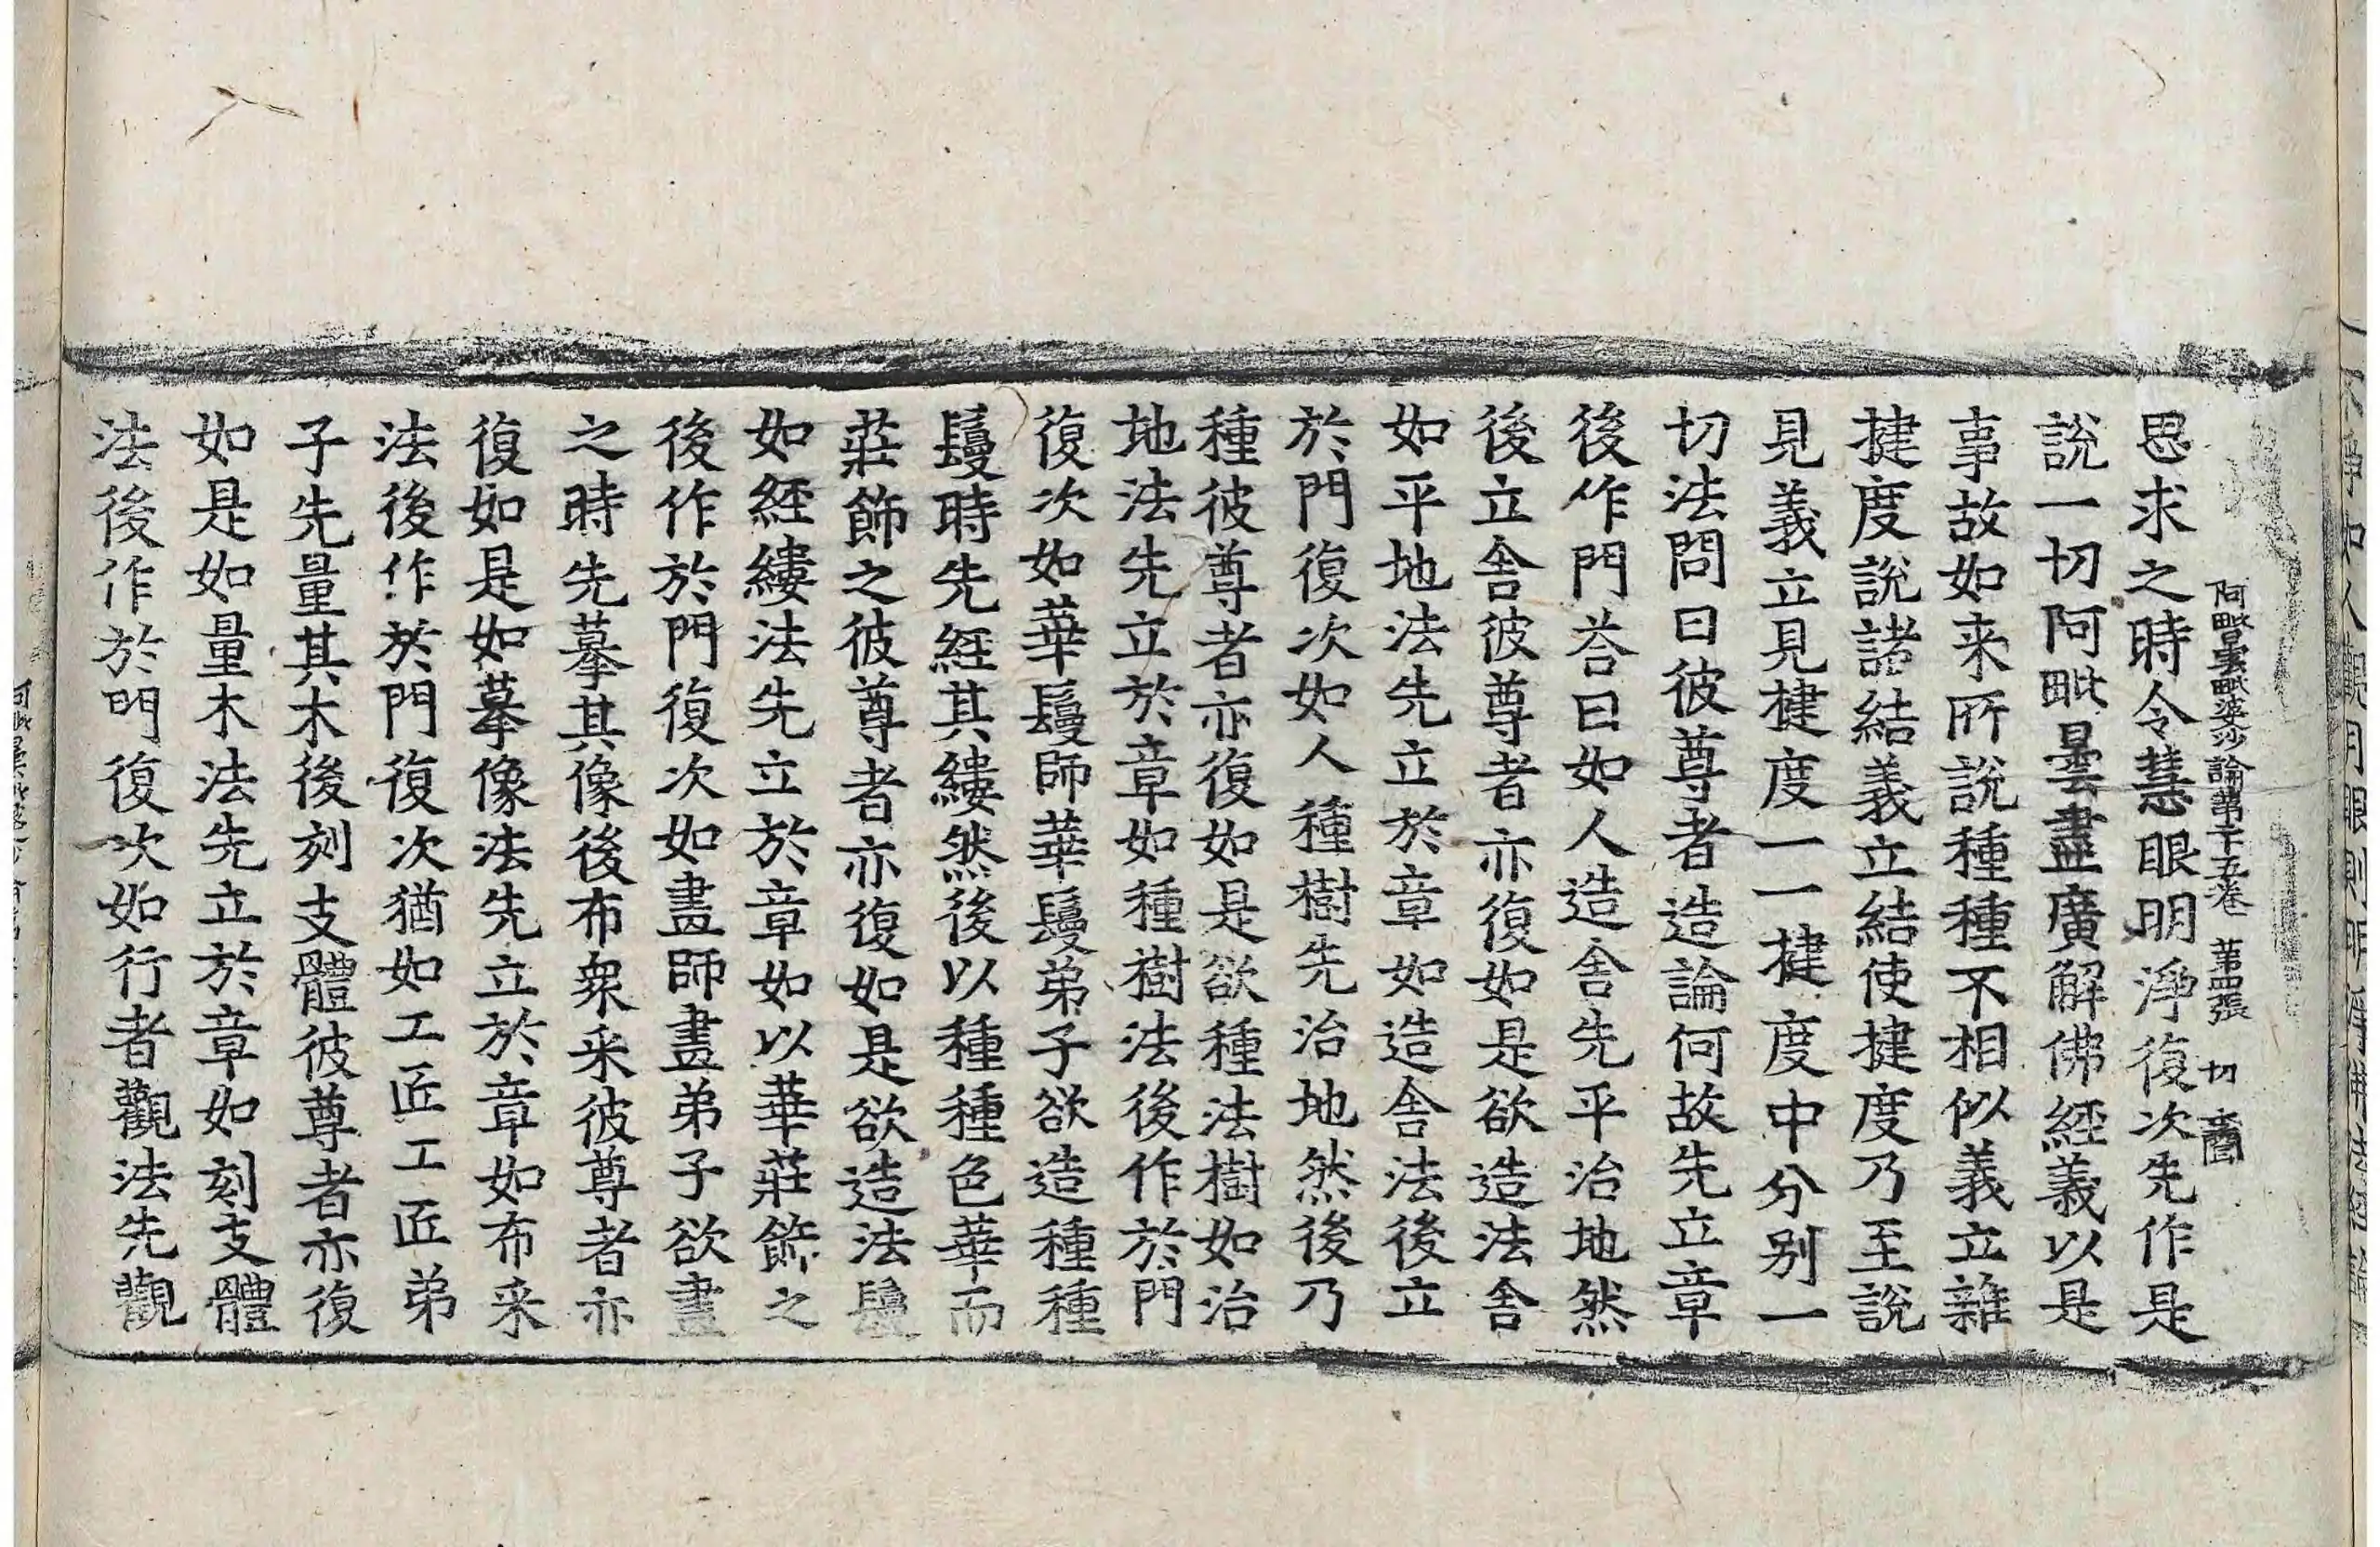 阿毗曇毗婆沙論第二十五卷 第四張 切
思求之時令慧眼明淨復次先作是
說一切阿毗曇盡廣解佛經義以是
事故如来所說種種不相似義立雜
揵度說諸結義立結使揵度乃至說
見義立見揵度一一揵度中分别一
切法問曰彼尊者造論何故先立章
後作門荅曰如人造舎先平治地然
後立舎彼尊者亦復如是欲造法舎
如平地法先立於章如造舎法後立
於門復次如人種樹先治地然後乃
種彼尊者亦復如是欲種法樹如治
地法先立於章如種樹法後作於門
復次如華鬘師華鬘弟子欲造種種
鬘時先經其縷然後以種種色華而
莊飾之彼尊者亦復如是欲造法鬘
如經縷法先立於章如以華莊飾之
後作於門復次如畫師畫弟子欲畫
之時先摹其像後布衆采彼尊者亦
復如是如摹像法先立於章如布采
法後作於門復次猶如工匠工匠弟
子先量其木後刻支體彼尊者亦復
如是如量木法先立於章如刻支體
法後作於門復次如行者觀法先觀